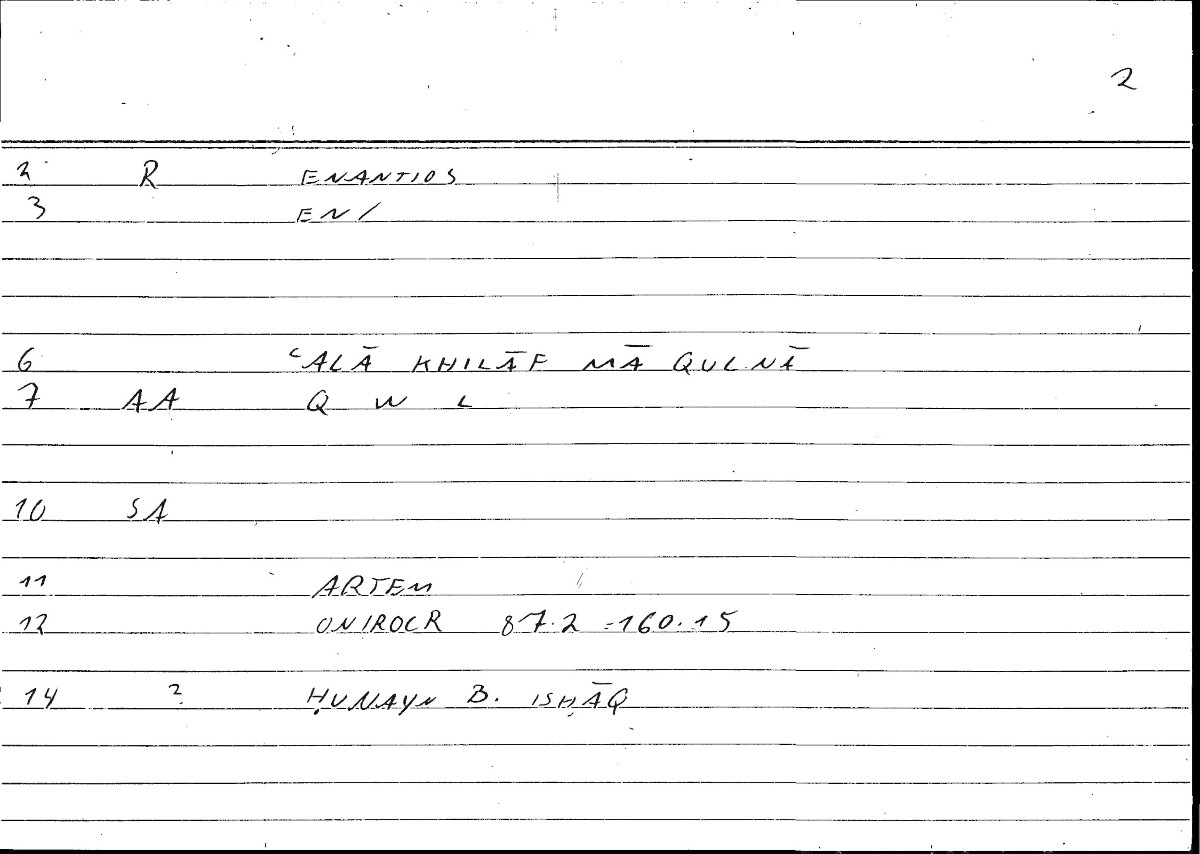 2
2 R ENANTIOS
3 EN/
6 ʿALĀ KHILĀF MĀ QULNĀ
7 AA Q W L
10 SA
11 ARTEM
12 ONIROCR 87.2 =160.15
14 ? ḤUNAYN B. ISḤĀQ